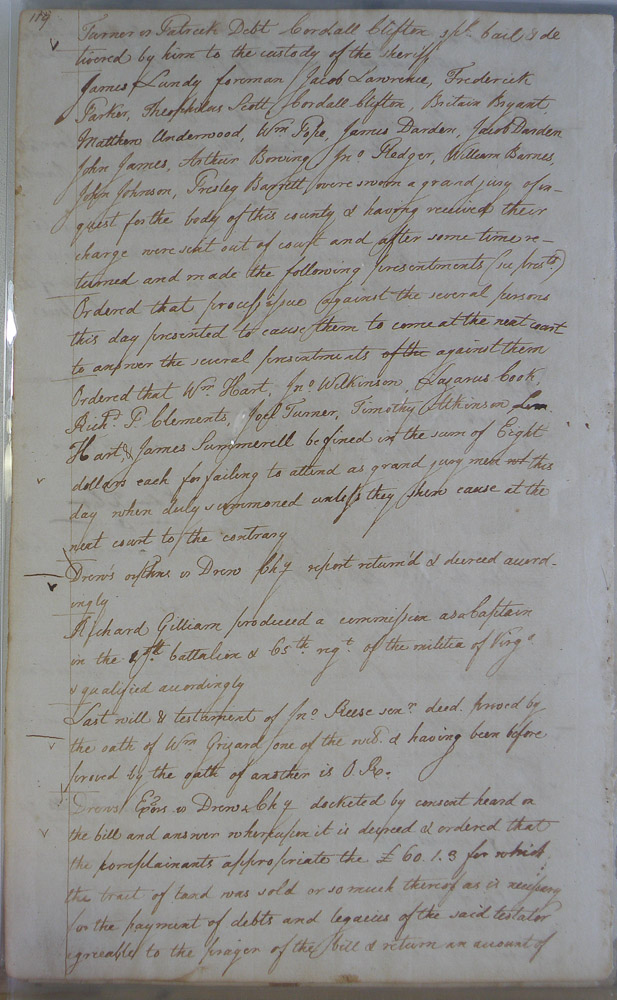 Turner vs Patrick Debt Cordall Clifton spl. bail, & de
livered by him to the custody of the sheriff
James Lundy foreman, Jacob Lawrence, Frederick
Parker, Theophilus Scott, Cordall Clifton, Britain Bryant,
Matthew Underwood, Wm Pope, James Darden, Jacob Darden
John James, Arthur Bowing, Jno Pledger, William Barnes,
John Johnson, Presley Barrett, were sworn a grand jury of in-
quest for the body of this county & having received their
charge were sent out of court and after some time re-
turned and made the following presentments
Ordered that process issue against the several persons
this day presented to cause them to come at the next court
to answer the several presentments of the against them
Ordered that Wm Hart, Jno Wilkinson, Lazarus Cook,
Richd P. Clements, Joel Turner, Timothy Atkinson
Hart, & James Summerell be fined in the sum of Eight
dollars each for failing to attend as grand jury men this
day when duly summoned unless they shew cause at the
next court to the contrary
Drew's orphns vs Drew Chy report return'd & decreed accord-
ingly
Richard Gilliam produced a commission as a Captain
in the battalion & 65th regt of the militia of Virga
& qualified accordingly
Last will & testament of Jno Reese senr deed. proved by
the oath of Wm Grizard one of the & having been before
proved by the oath of another is O. R.
Drews Exors vs Drew & Chy docketed by consent heard on
the bill and answer whereupon it is decreed & ordered that
the complainants appropriate the £ 60.1.3 for which
the tract of land was sold or so much thereof as is necessary
for the payment of debts and legacies of the said testator
agreeable to the prayer of the bill & return an account of